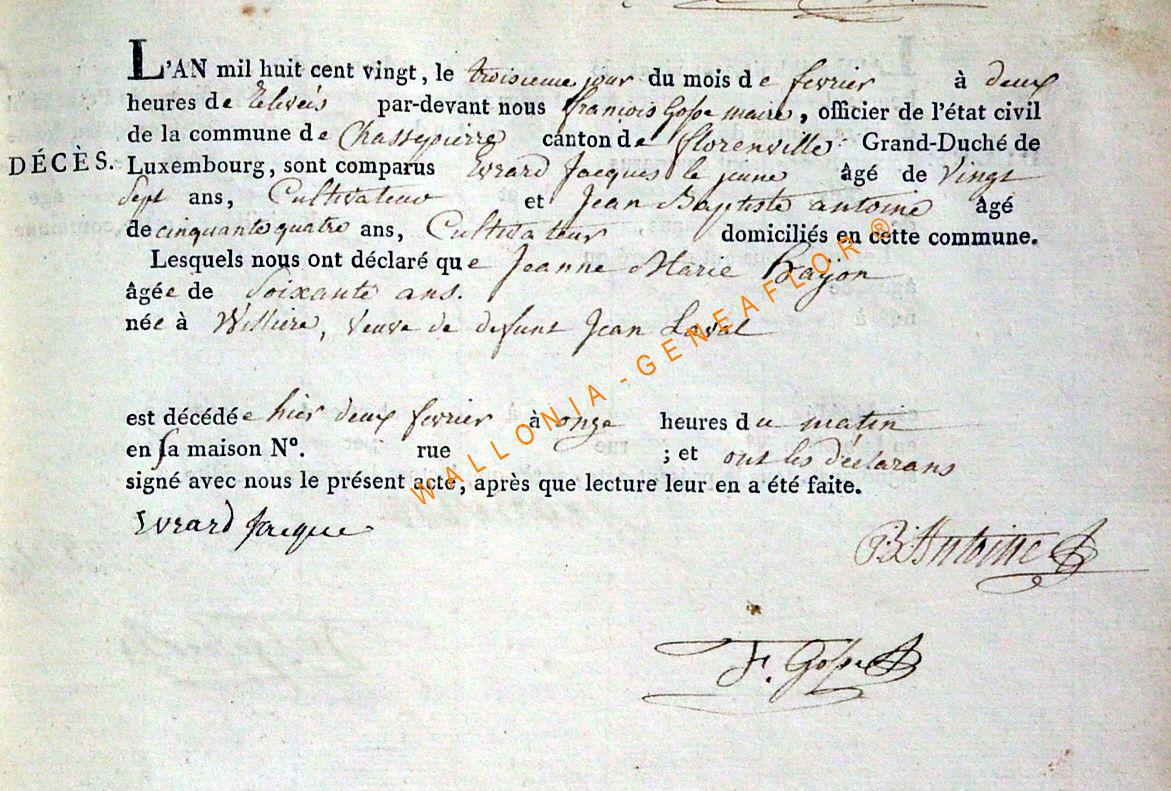 L'AN mil huit cent vingt, le troisieme jour du mois de fevrier à deux
heures de Relevés par-devant nous francois Gosse maire, officier de l'état civil
de la commune de Chassepierre canton de florenville Grand-Duché de
DÉCÈS. Luxembourg, sont comparus Evrard Jacques le jeune âgé de Vingt
Sept ans, Cultivateur et Jean Baptiste antoine âgé
de cinquante quatre ans, Cultivateur domiciliés en cette commune.
Lesquels nous ont déclaré que Jeanne Marie Hajon
âgée de Soixante ans.
née à Veuve de defunt Jean Laval
est décédée hier deux fevrier à onze heures du matin
en sa maison N°. rue ; et ont les déclarans
signé avec nous le présent acte, après que lecture leur en a été faite.
Evrard Jacque
B Antoine
F. Gosse
WALLONIA - GENEAFLOR ®